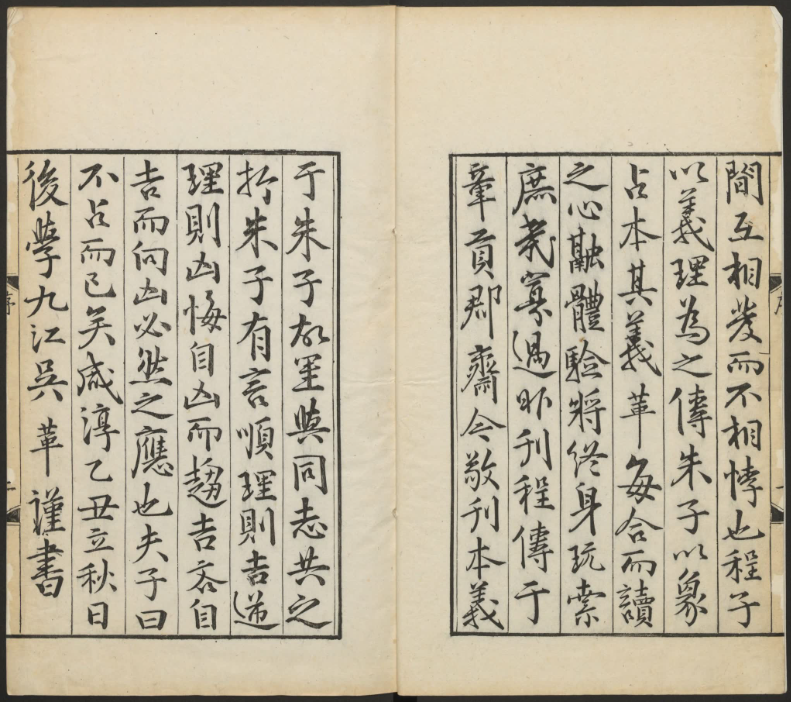 間互相發而不相悖也程子
以義理為之傳朱子以象
占本其義革每合而讀
之心融體驗將終身玩索
庶幾寡過昨刊程傳于
章貢郡齋今敬刊本義
于朱子故里與同志共之
抑朱子有言順理則吉逆
理則凶悔自凶而趨吉吝自
吉而向凶必然之應也夫子曰
不占而已矣咸淳乙丑立秋日
後學九江吳革謹書
序